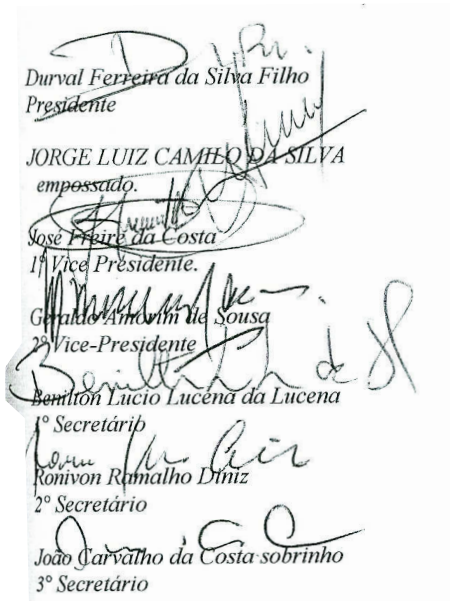 Durval Ferreira da Silva Filho
Presidente
JORGE LUIZ CAMILO DA SILVA
empossado.
José Freire da Costa
1º Vice Presidente.
Geraldo Amorim de Sousa
2º Vice-Presidente
Benilton Lucio Lucena da Lucena
1º Secretário
Ronivon Ramalho Diniz
2º Secretário
João Carvalho da Costa sobrinho
3º Secretário